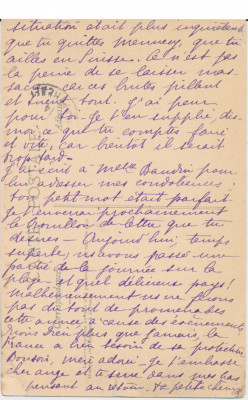 situation était plus inquiétante
que tu quittes Mennecy, que tu
ailles en Suisse. Ce n'est pas
la peine de se laisser mas-
sacrer car ces brutes pillent
et tuent tout. J'ai peur
pour toi. Je t'en supplie, dis-
moi ce que tu comptes faire
et vite, car bientôt il serait
trop tard.
J'ai écrit à Mme Baudin pour
lui adresser mes condoléances ;
ton petit mot était parfait.
Je t'enverrai prochainement
le brouillon de lettre que tu
désires - Aujourd'hui, temps
superbe, ns avons passé une
partie de la journée sur la
plage et quel délicieux pays !
Malheureusement ns ne faisons
pas du tout de promenades
cette année, à cause des événements
Prions Dieu plus que jamais, la
France a bien besoin de sa protection
Bonsoir, mère adorée. Je t'embrasse
cher ange et te serre dans mes bras
pensant au retour. Ta petite